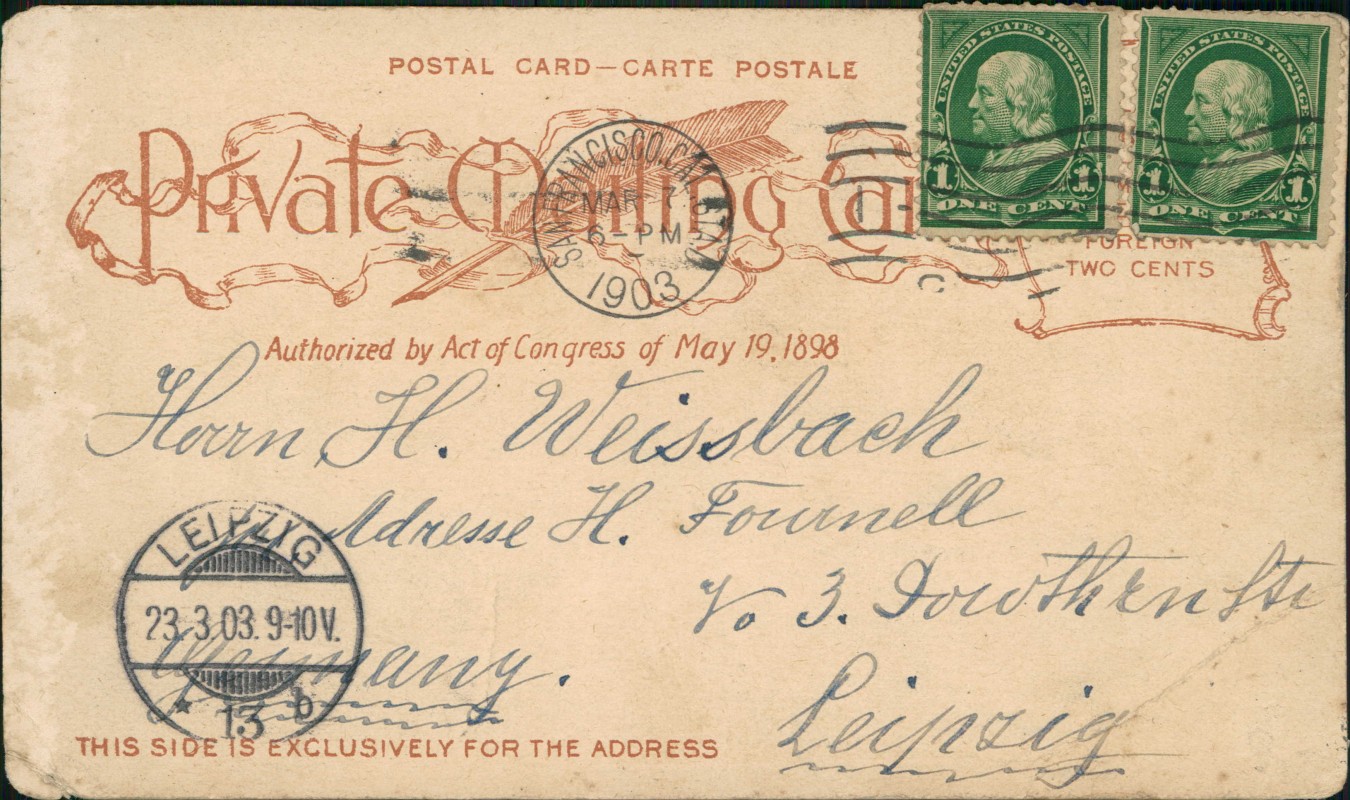 POSTAL CARD—CARTE POSTALE
Private Mailing Ca
UNITED STATES POSTAGE
1 1
ONE CENT
UNITED STATES POSTAGE
1 1
ONE CENT
SAN FRANCISCO, CAL. STA.
MAR 7
6-PM
1903
FOREIGN
TWO CENTS
Authorized by Act of Congress of May 19, 1898
Herrn H. Weissbach
Adresse H. Fournell
No 3.
Leipzig
Germany.
LEIPZIG
23.3.03.9-10V.
* 13 b
THIS SIDE IS EXCLUSIVELY FOR THE ADDRESS